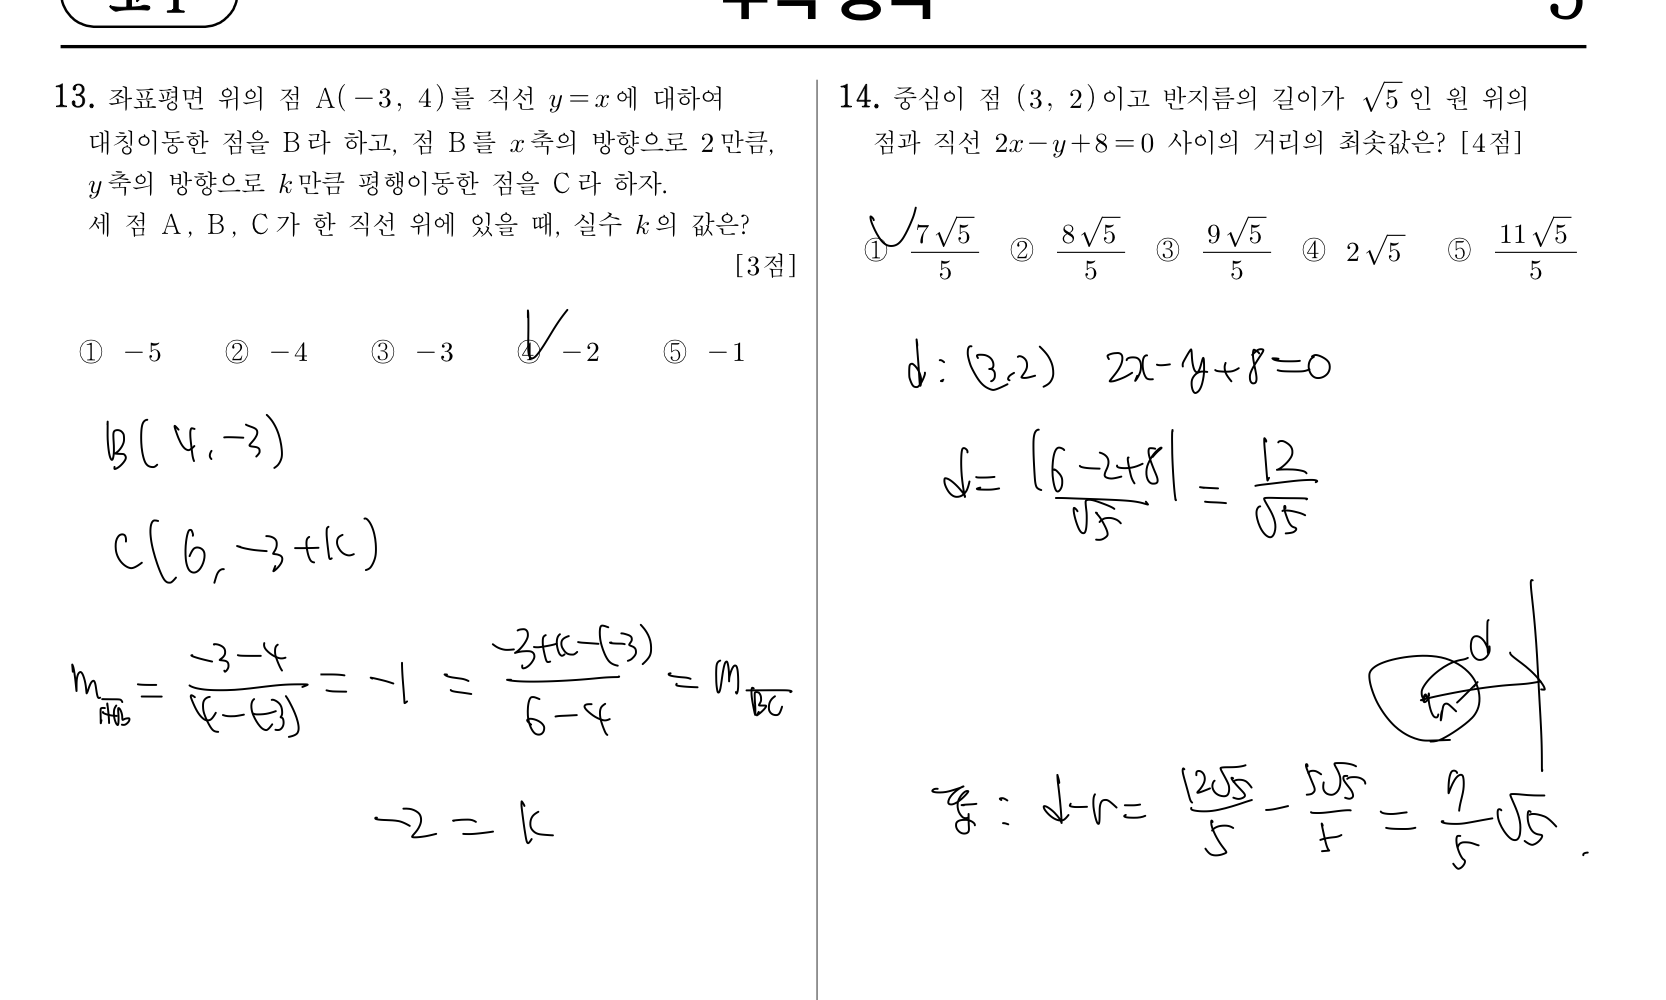 고 1
수학 영역
13. 좌표평면 위의 점 A(−3, 4)를 직선 y=x에 대하여
대칭이동한 점을 B라 하고, 점 B를 x축의 방향으로 2만큼,
y축의 방향으로 k만큼 평행이동한 점을 C라 하자.
세 점 A, B, C가 한 직선 위에 있을 때, 실수 k의 값은?
[3점]
① −5 ② −4 ③ −3 ④ −2 ⑤ −1
B(4, -3)
C(6, -3+k)
m_AB = (-3-4)/(4-(-3)) = -1 = (-3+k-(-3))/(6-4) = m_BC
-2 = k
14. 중심이 점 (3, 2)이고 반지름의 길이가 √5인 원 위의
점과 직선 2x−y+8=0 사이의 거리의 최솟값은? [4점]
① 7√5/5 ② 8√5/5 ③ 9√5/5 ④ 2√5 ⑤ 11√5/5
d : (3, 2) 2x-y+8=0
d = |6-2+8|/√5 = 12/√5
d
r
: d-r = 12√5/5 - 5√5/5 = 7/5 √5 .